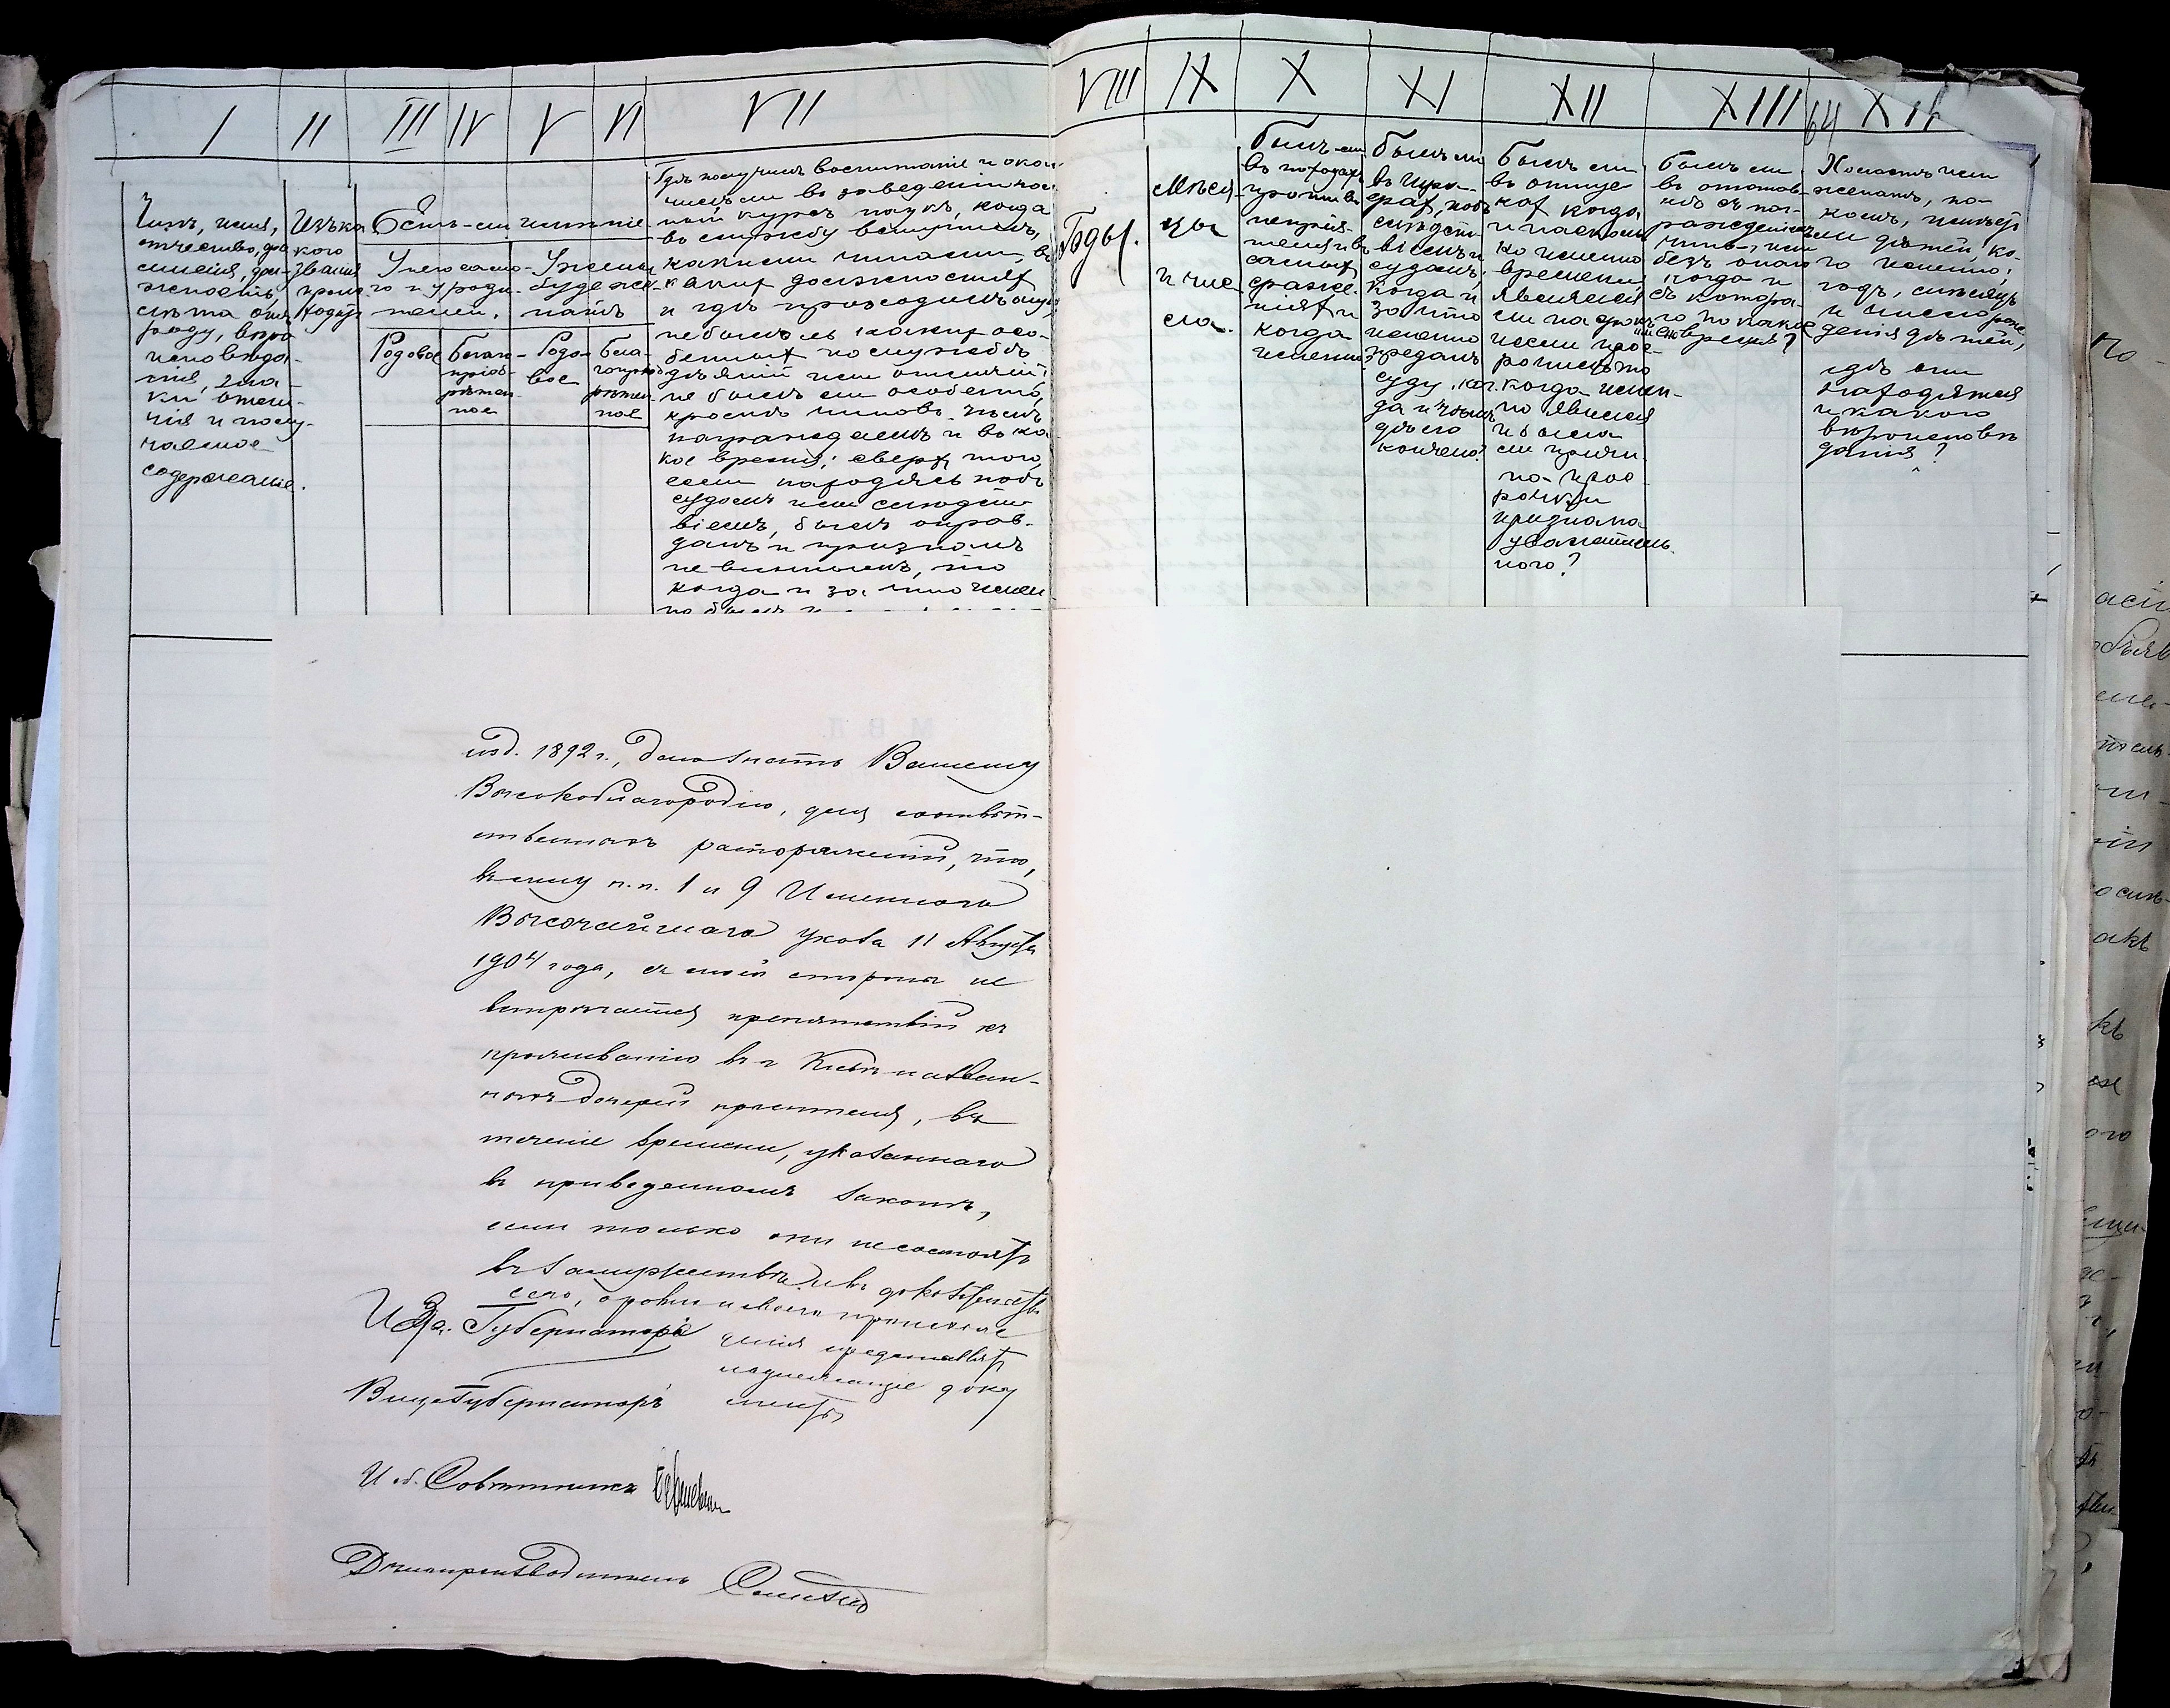 I II III IV V VI VII
Чинъ, имя,
отчество, фа
милія, дол-
жность,
лѣта отъ
роду, вѣро
исповѣда-
нія, зна-
ки отли-
чія и полу-
чаемое
содержаніе.
Изъ ка
кого
званія
проис
ходитъ
Есть-ли имѣніе
У него само-
го и у роди-
телей.
У жены
буде же-
натъ
Родовое
Благо-
пріоб-
рѣтен-
ное
Родо-
вое
Бла-
гопріоб
рѣтен-
ное
Гдѣ получилъ воспитаніе и окон
чилъ ли въ заведеніи пол-
ный курсъ наукъ, когда
въ службу вступилъ,
какими чинами, въ
какихъ должностяхъ
и гдѣ проходилъ оную,
не было ль какихъ осо-
бенныхъ по службѣ
дѣяній или отличій;
не былъ ли особенно,
кромѣ чиновъ, чѣмъ
награждаемъ и въ ка
кое время; сверхъ того,
если находясь подъ
судомъ или слѣдст-
віемъ, былъ оправ-
данъ и признанъ
невиннымъ, то
когда и за что имен-
но былъ
VIII IX X XI XII XIII 64 XIV
Годы.
Мѣся-
цы
и чис-
ла.
Былъ-ли
въ походахъ
противъ
непрія-
теля и въ
самыхъ
сраже-
ніяхъ и
когда
именно.
Былъ ли
въ штра-
фахъ, подъ
слѣдст-
віемъ и
судомъ;
когда и
за что
именно
преданъ
суду, ког-
да и чѣмъ
дѣло
кончено?
Былъ ли
въ отпус
кахъ когда
и на сколь
ко именно
времени;
являлся
ли на срокъ
и если про-
срочилъ то
когда имен-
но явился
и была
ли причи-
на прос
рочки
признана
уважитель-
ною?
Былъ ли
въ отстав-
кѣ съ наг-
ражденіемъ
чина, или
безъ онаго
когда и
съ котора-
го по какое
время?
Холостъ или
женатъ, на
комъ, имѣетъ
ли дѣтей, ко-
го именно;
годъ, мѣсяцъ
и число рож-
денія дѣтей,
гдѣ они
находятся
и какого
вѣроисповѣ
данія?
изд. 1892 г., даю знать Вашему
Высокоблагородію, для соотвѣт-
ственныхъ распоряженій, что,
въ силу п.п. 1 и 9 Именного
Высочайшаго указа 11 Августа
1904 года, съ моей стороны не
встрѣчается препятствій къ
проживанію въ г. Кіевѣ назван-
ныхъ дочерей просителя, въ
теченіе времени, указаннаго
въ приведенномъ законѣ,
если только они не состоятъ
въ замужествѣ и въ доказательство
сего, а равно и своего происхож
денія представятъ
надлежащіе доку
менты
И. д. Губернатора
Вице-Губернаторъ
И об. Совѣтника
Дѣлопроизводитель